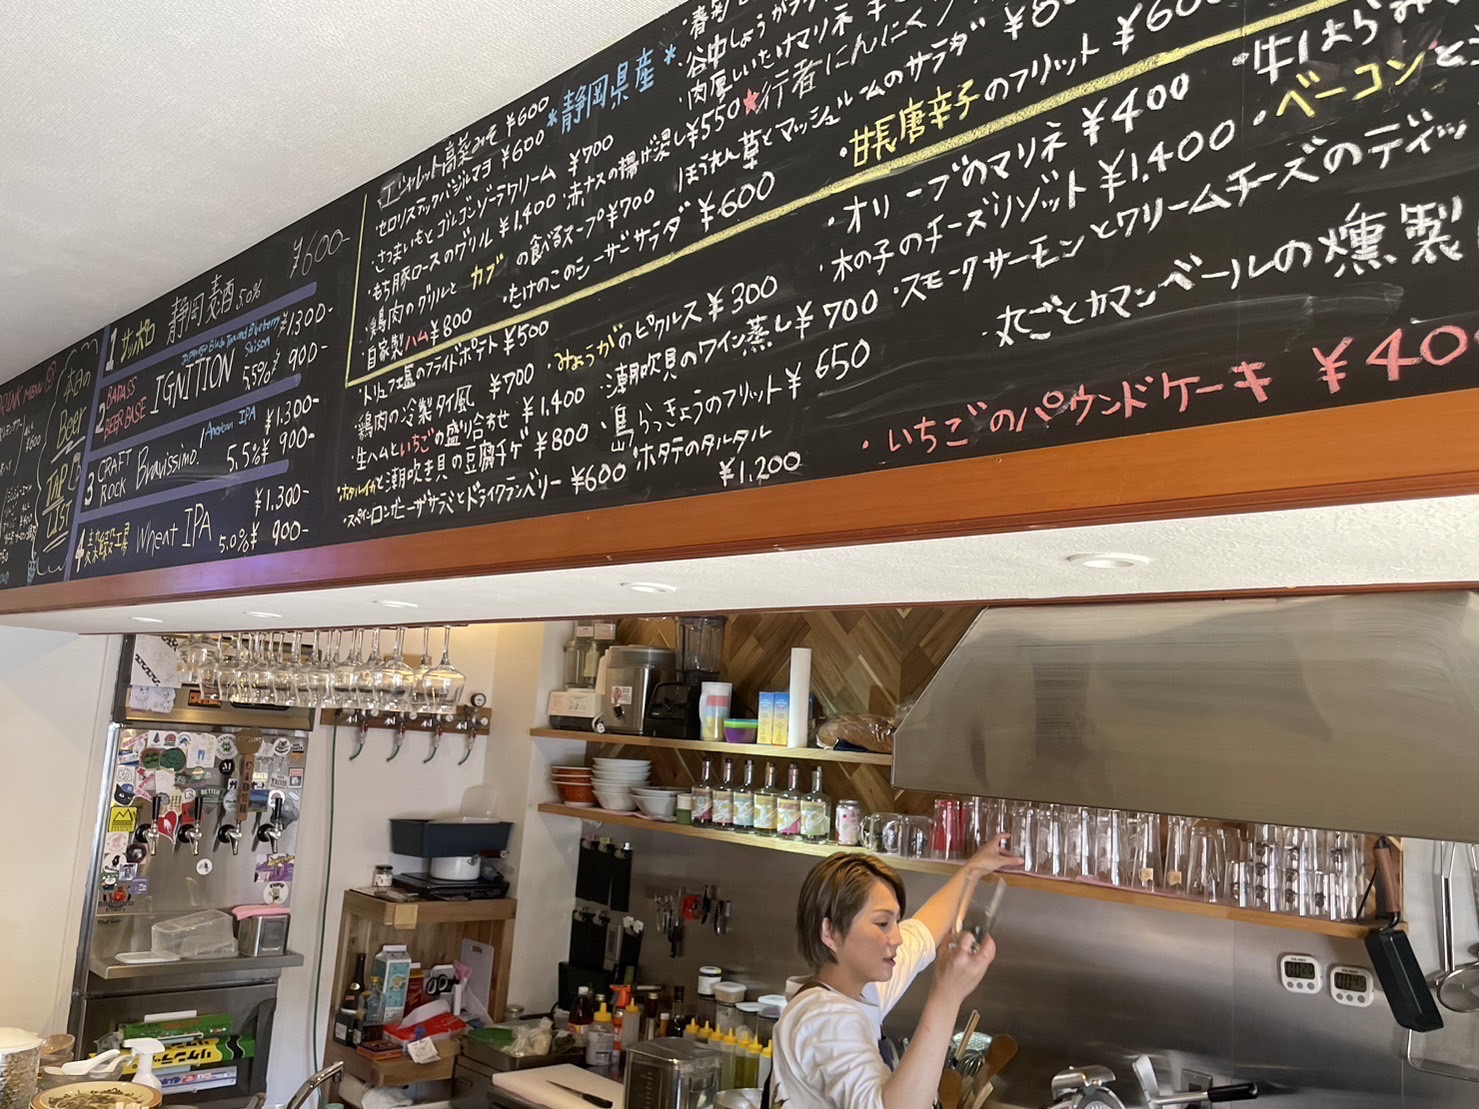 DRINK MENU
本日の
Beer
TAP
LIST
1 サッポロ 静岡麦酒 5.0% ¥600-
Japanese Blue Tea and Blueberry Saison
2 BADASS BEER BASE IGNITION 5.5% ¥1300- ¥900-
American IPA
3 CRAFT ROCK Bravissimo! 5.5% ¥1,300- ¥900-
4 Wheat IPA 5.0% ¥1.300- ¥900-
高菜みそ ¥600
・セロリスティックバジルマヨ ¥600
・さつまいもとゴルゴンゾーラクリーム ¥700
・もち豚ロースのグリル ¥1,400
・鶏肉のグリルとカブの食べるスープ ¥700
・自家製ハム ¥800
*静岡県産*
・赤ナスの揚げ浸し ¥550
・たけのこのシーザーサラダ ¥600
・谷中しょうが
・肉厚しいたけマリネ
★行者にんにく
ほうれん草とマッシュルームのサラダ
・甘長唐辛子のフリット ¥600
・トリュフ塩のフライドポテト ¥500
・鶏肉の冷製タイ風 ¥700
・生ハムといちごの盛り合せ ¥1,400
・ホタルイカと潮吹き貝の豆腐チゲ ¥800
・スペインロンガニーザサラミとドライクランベリー ¥600
・みょうがのピクルス ¥300
・潮吹貝のワイン蒸し ¥700
・島らっきょうのフリット ¥650
・ホタテのタルタル ¥1,200
・オリーブのマリネ ¥400
・木の子のチーズリゾット ¥1,400
・スモークサーモンとクリームチーズのディッ
・丸ごとカマンベールの燻製
・いちごのパウンドケーキ ¥40
・牛はらみ
・ベーコンと